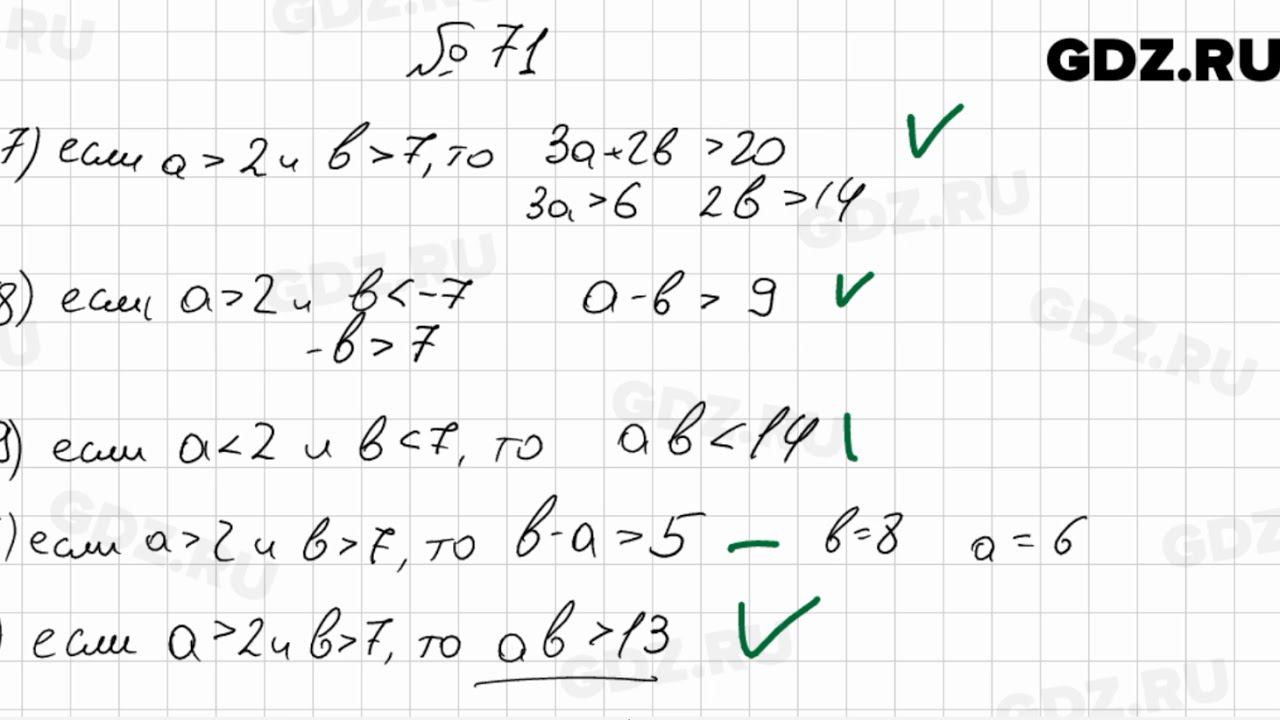 № 71
GDZ.RU
7) если a > 2 и b > 7, то 3a + 2b > 20
3a > 6 2b > 14
8) если a > 2 и b < -7 a - b > 9
-b > 7
9) если a < 2 и b < 7, то ab < 14
) если a > 2 и b > 7, то b - a > 5 — b = 8 a = 6
) если a > 2 и b > 7, то ab > 13